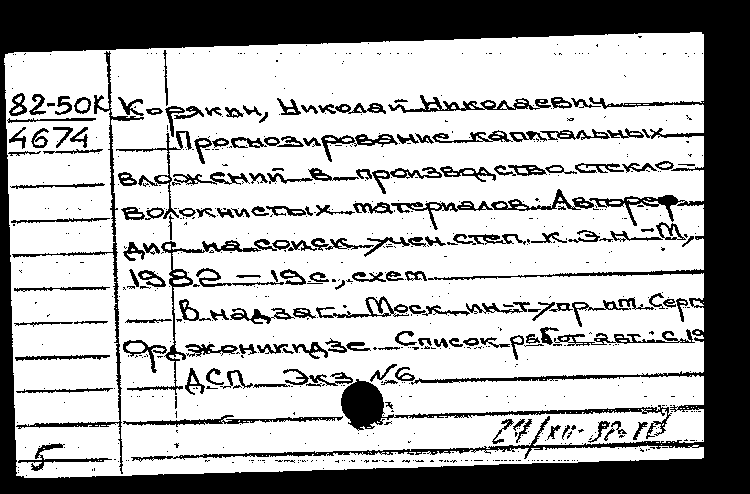 82-50К Корякин, Николай Николаевич
4674 Прогнозирование капитальных
вложений в производство стекло-
волокнистых материалов: Автореф
дис на соиск учен. степ. к. э. н. -М.,
1982 - 19с., схем
В надзаг.: Моск. ин-т упр им. Серго
Орджоникидзе Список работ авт.: с. 19
ДСП Экз. №6
5